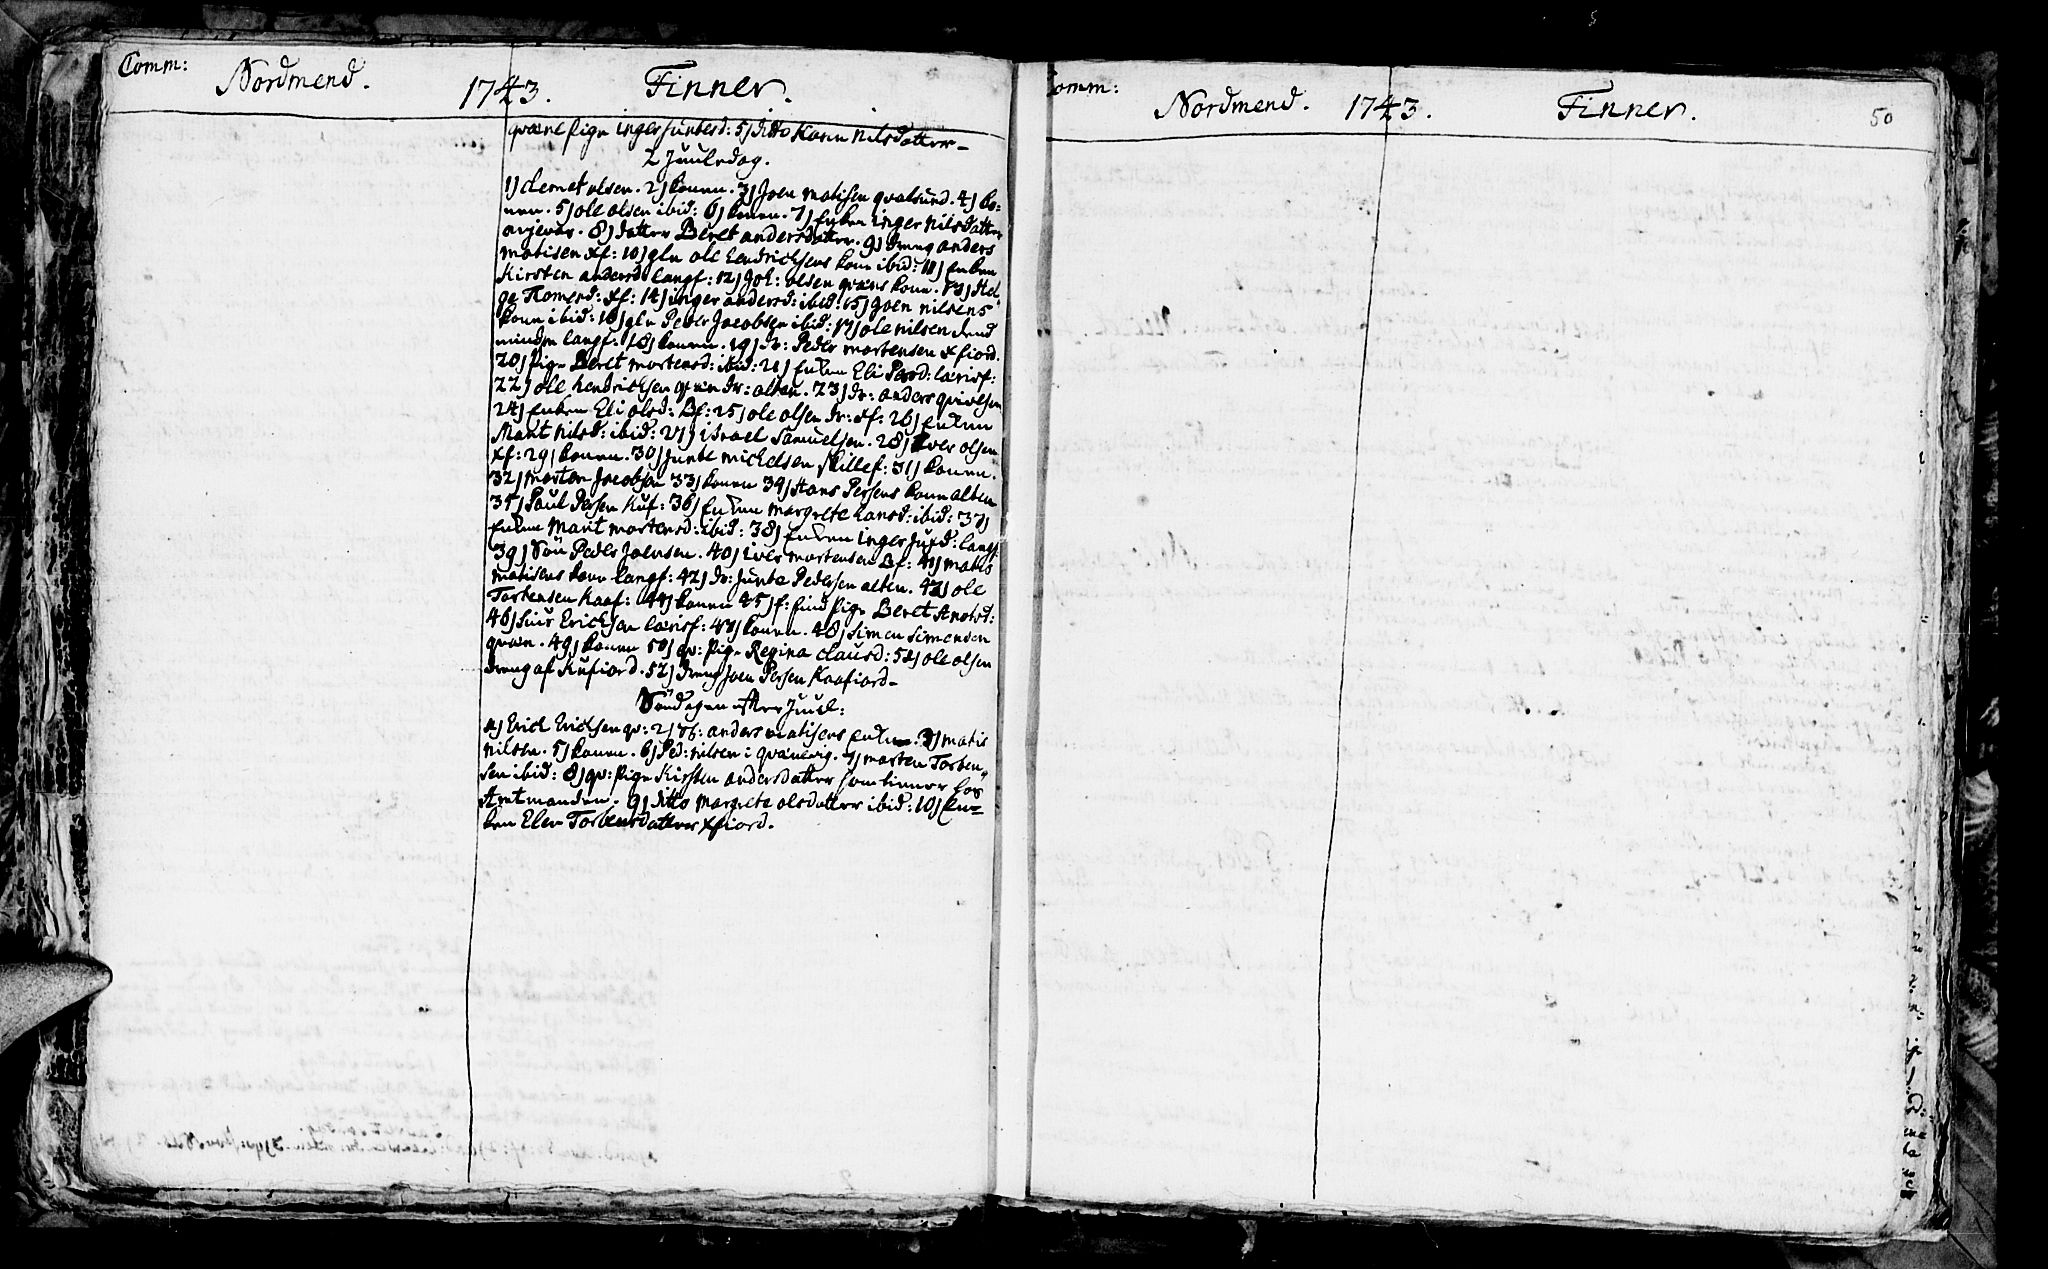 Comm:
Nordmend. 1743. Finner.
qvæne Pige inger Juntesd: 5) ditto Karen Nilsdatter
2 Juuledag.
1) Clemet olsen. 2) konen. 3) Joen Matisen qvalsund. 4) ko-
nen. 5) ole olsen ibid: 6) konen. 7) Enken inger Nilsdatter
8) datter Beret andersdatter. 9) dreng anders
Matisen xf: 10) gln ole Hendrichsens kone ibid: 11) Enken
Kirsten andersd: langf: 12) Joh: olsen qvæns kone. 13) Hel-
ge Tomesd: xf: 14) inger andersd: ibid: 15) Joen Nilsens
kone ibid: 16) gln Peder Jacobsen ibid: 17) ole Nilsen dend
mindre langf. 18) konen. 19) dr: Peder Mortensen xfiord.
20) Pige Beret Mortensd: ibid: 21) Enken Eli Persd: lærisf:
22) ole Hendrichsen qvæn dr: alten. 23) dr: anders
24) Enken Eli olsd: Bf: 25) ole olsen dr: xf: 26) Enken
Marit Nilsd: ibid: 27) israel Samuelsen. 28) iver olsen
xf: 29) konen. 30) Junte Michelsen Skillef: 31) konen.
32) Morten Jacobsen 33) konen 34) Hans Persens kone alten
35) Paul Persen Kuf: 36) Enken Margrete Hansd: ibid: 37)
Enken Marit Mortensd: ibid: 38) Enken inger Jufd: langf:
39) Søn Peder Joensen. 40) iver Mortensen Bf: 41) Matis
Matisens kone langf: 42) dr: Junte Pedersen alten. 43) ole
Torbensen Kaaf: 44) konen 45) f: find Pige Beret
46) Siur Erichsen lærisf: 47) konen. 48) Simen Simensen
qvæn. 49) konen 50) qv: Pige Regina Clausd: 51) ole olsen
dreng af Kufiord. 52) dreng Joen Persen Kaafiord
Søndagen efter Juul:
1) Erich Erichsen qv: 2) anders Matisens Enke. 3) Matis
Nilsen. 5) konen. 6) Ped: Nilsen i qvænvig. 7) Morten Torben-
sen ibid: 8) qv: Pige Kirsten andersdatter som tiener hos
Amtmanden. 9) ditto Margrete olsdatter ibid: 10) En-
ken Elen Torbensdatter xfiord.
omm:
Nordmend. 1743. Finner.
50